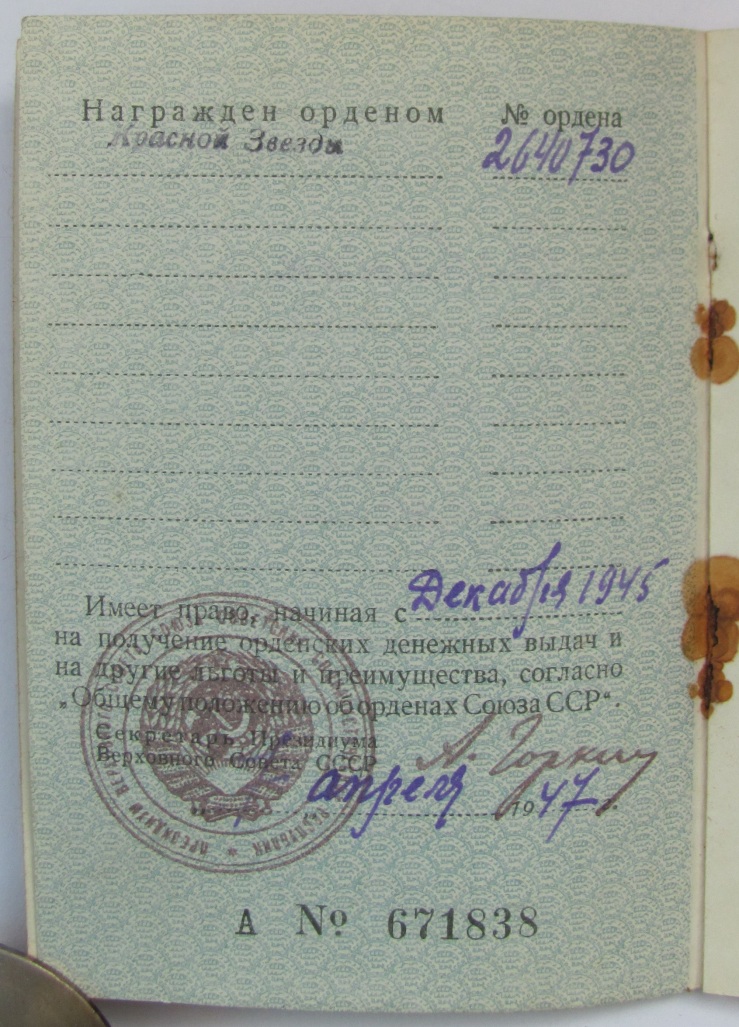 Награжден орденом № ордена
Красной Звезды 2640730
Имеет право, начиная с Декабря 1945
на получение орденских денежных выдач и
на другие льготы и преимущества, согласно
„Общему положению об орденах Союза ССР“.
Секретарь Президиума
Верховного Совета СССР А. Горкин
апреля 1947 г.
ПРЕЗИДИУМ ВЕРХОВНОГО
А № 671838